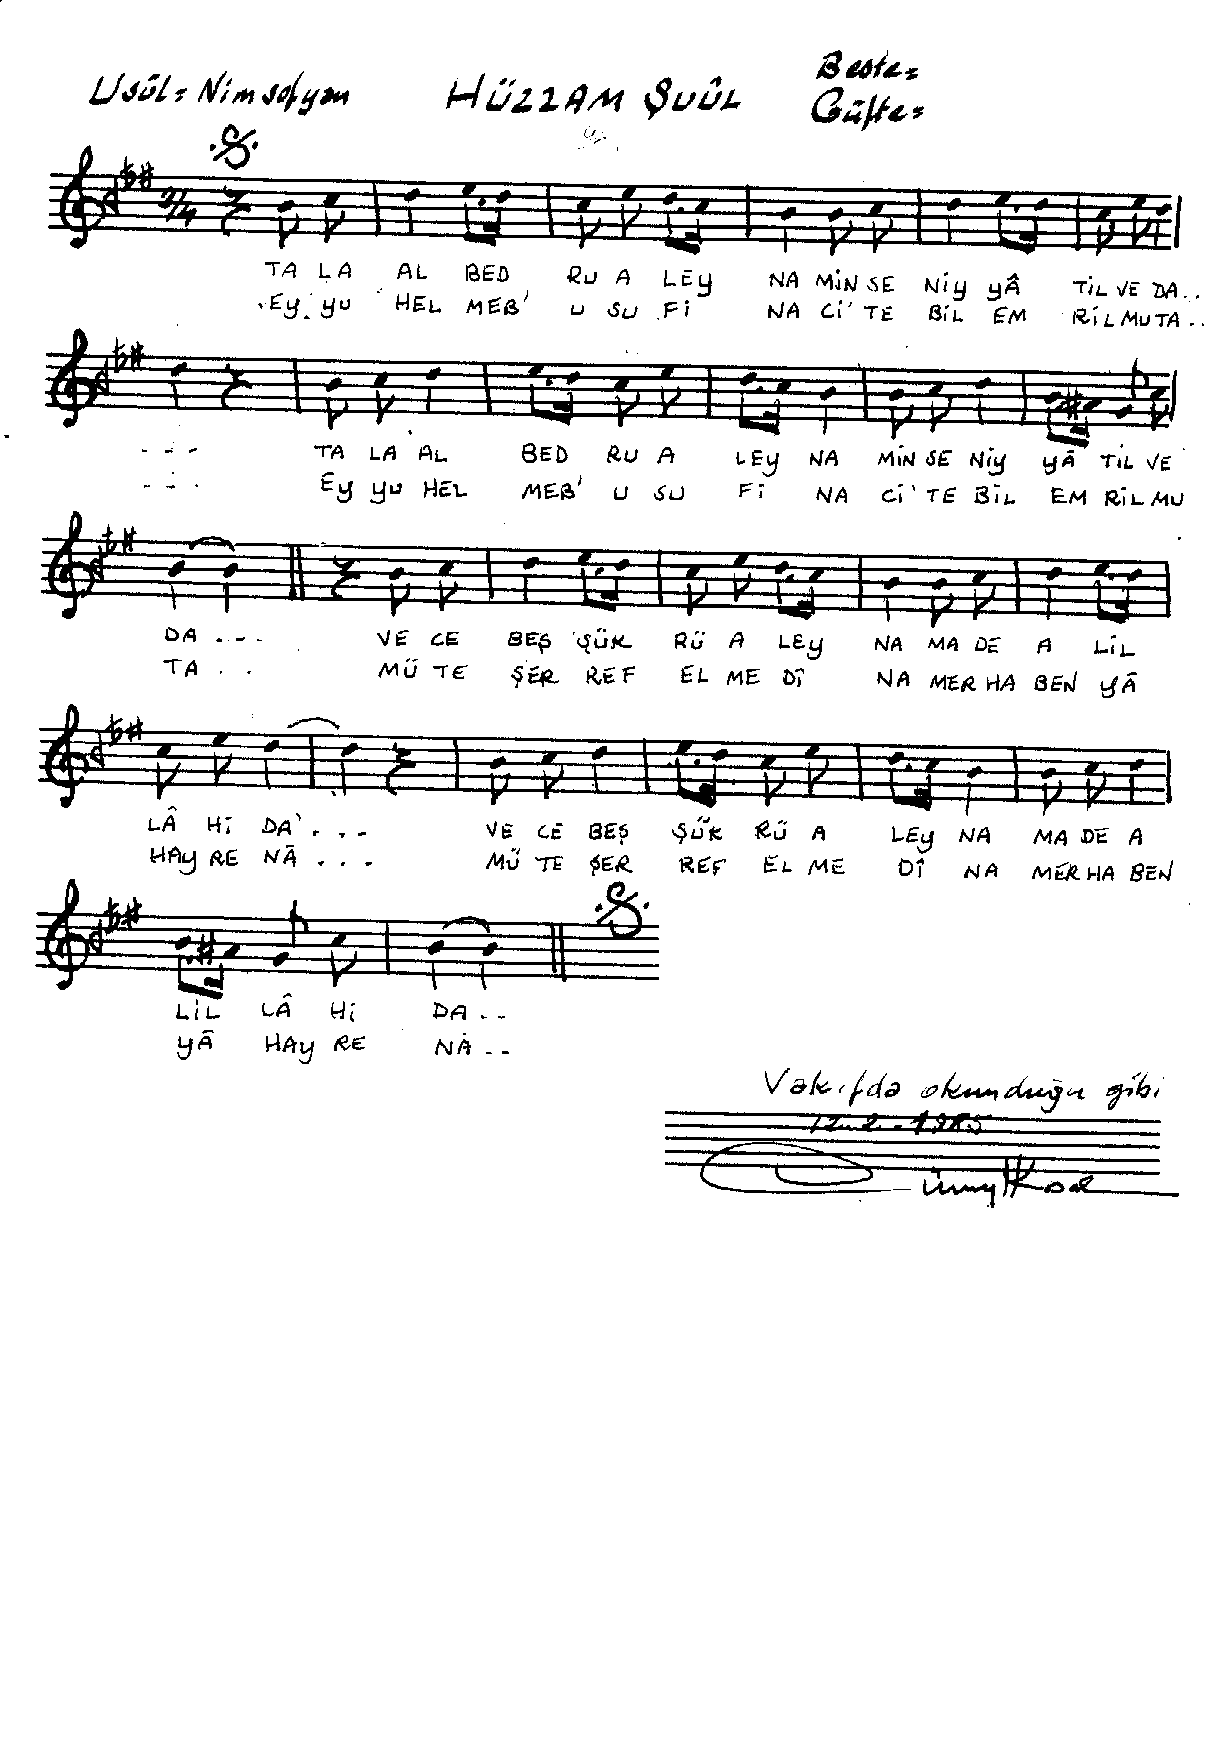 Usûl= Nimsofyan HÜZZAM ŞUÛL Beste=
Güfte=
2/4
TA LA AL BED RU A LEY NA MİN SE NİY YÂ TİL VE DA..
EY YU HEL MEB' U SU Fİ NA Cİ' TE BİL EM RİL MU TA..
--- TA LA AL BED RU A LEY NA MİN SE NİY YÂ TİL VE
--- EY YU HEL MEB' U SU Fİ NA Cİ' TE BİL EM RİL MU
DA .--- VE CE BEŞ ŞÜK RÜ A LEY NA MA DE A LİL
TA . . . MÜ TE ŞER REF EL ME DÎ NA MER HA BEN YÂ
LÂ Hİ DA' . . . VE CE BEŞ ŞÜK RÜ A LEY NA MA DE A
HAY RE NÂ . . . MÜ TE ŞER REF EL ME DÎ NA MER HA BEN
LİL LÂ Hİ DA . . .
YÂ HAY RE NÂ . . .
Vakıfda okunduğu gibi